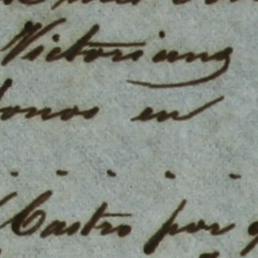 Victoriano
onos en
Castro por